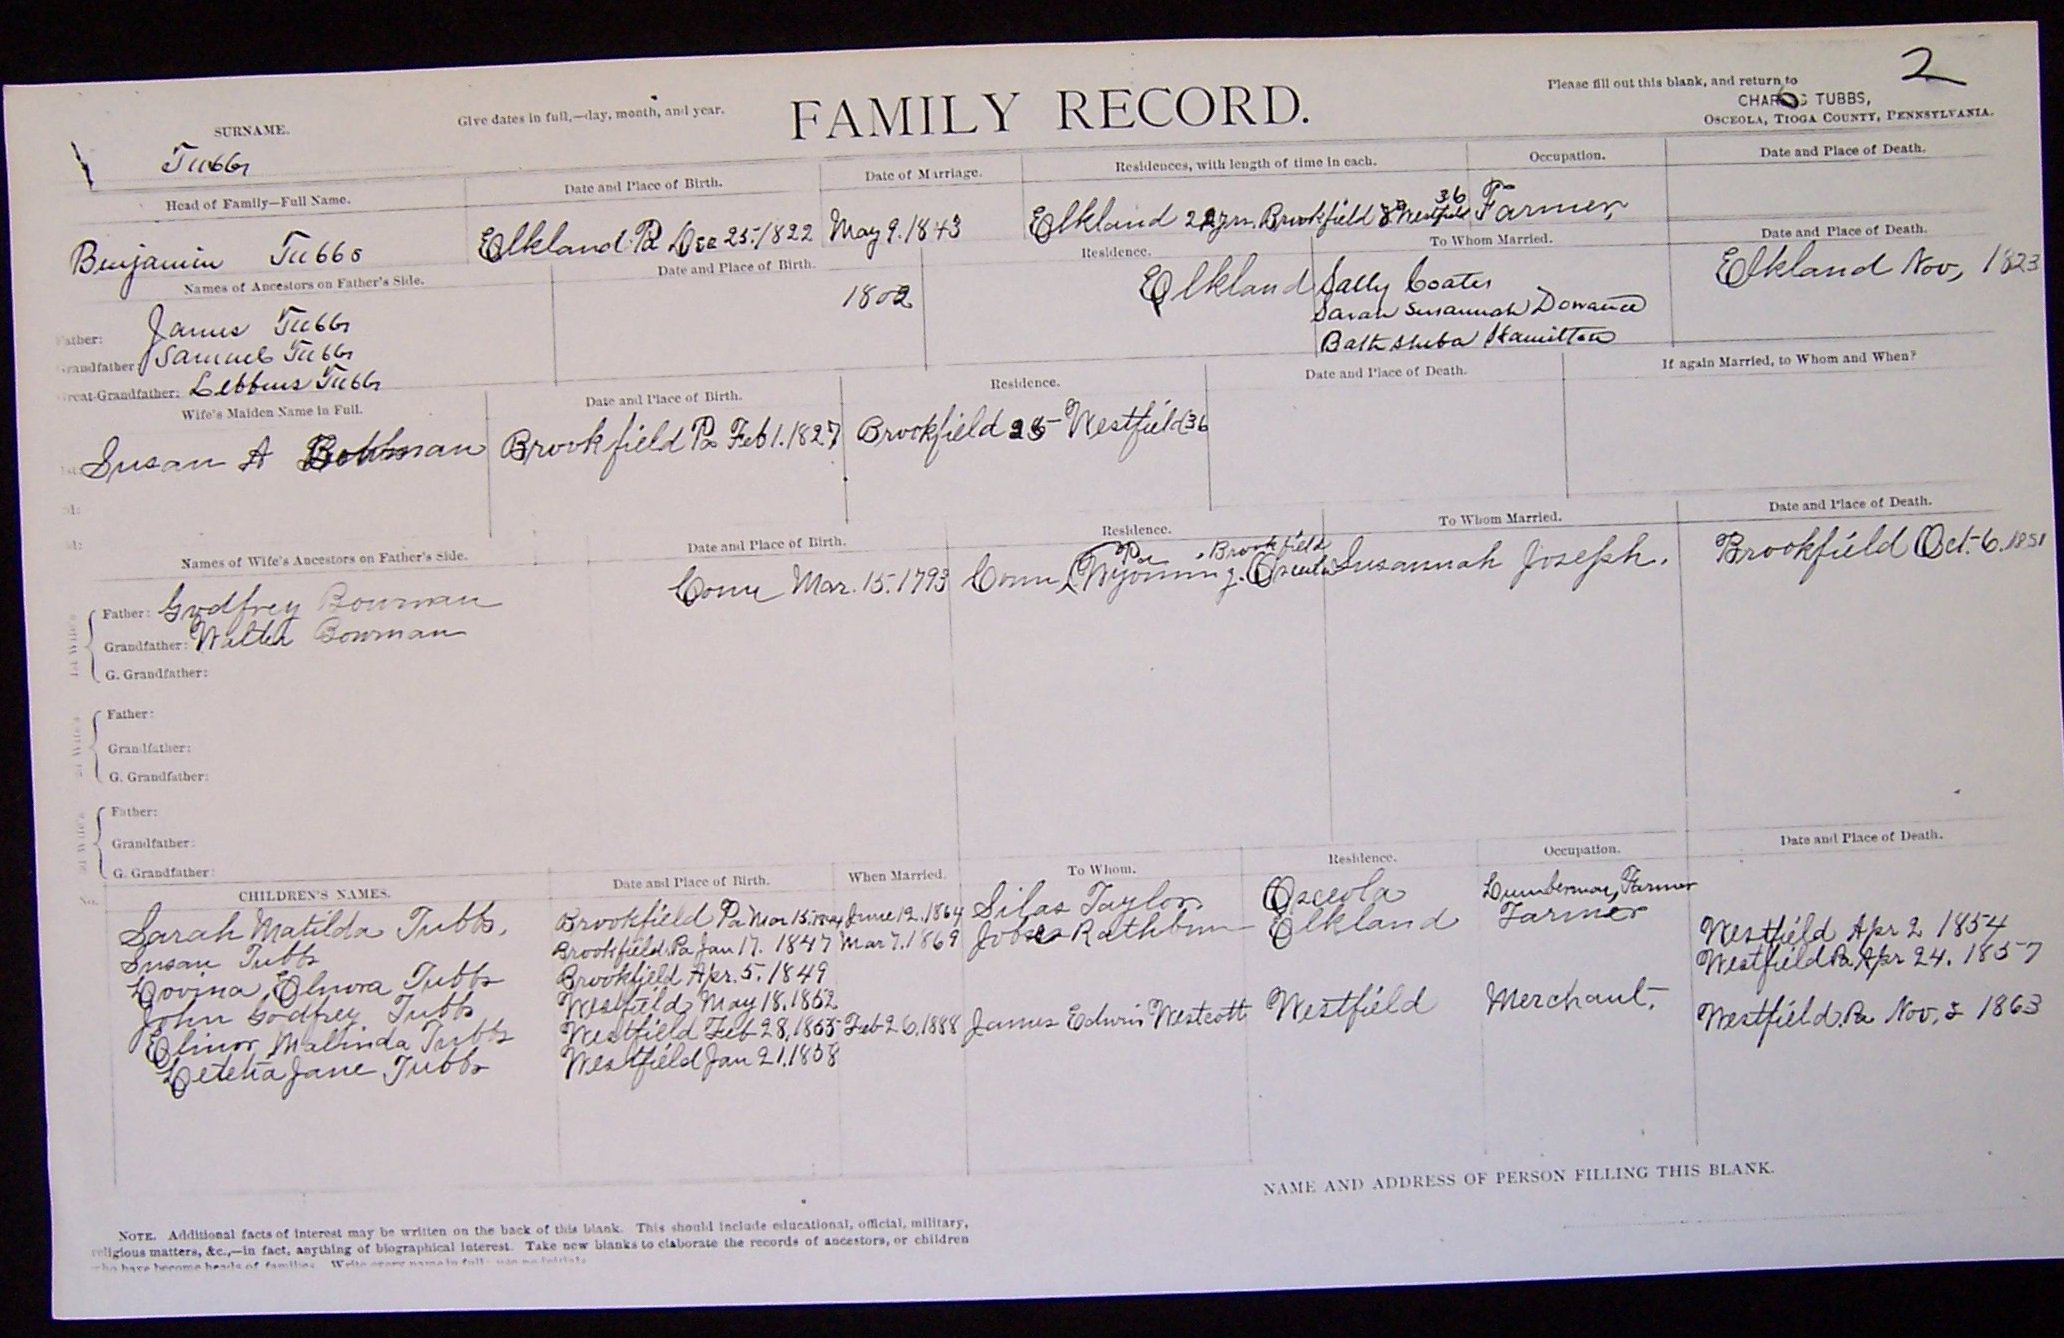 2
Please fill out this blank, and return to
TUBBS,
OSCEOLA, TIOGA COUNTY, PENNSYLVANIA.
Give dates in full,—day, month, and year.
FAMILY RECORD.
SURNAME.
Tubbs
Head of Family—Full Name. Date and Place of Birth. Date of Marriage. Residences, with length of time in each. Occupation. Date and Place of Death.
Benjamin Tubbs Elkland Pa Dec 25-1822 May 9. 1843 Elkland yrs. Brookfield & Westfield 36 Farmer
Names of Ancestors on Father's Side. Date and Place of Birth. Residence. To Whom Married. Date and Place of Death.
Father: James Tubbs 1802 Elkland Sally Coates Elkland Nov, 1823
Grandfather: Samuel Tubbs Sarah Susannah
Great-Grandfather: Lebbeus Tubbs Bathsheba Hamilton
Wife's Maiden Name in Full. Date and Place of Birth. Residence. Date and Place of Death. If again Married, to Whom and When?
1st: Susan A Bowman Brookfield Pa Feb 1. 1827 Brookfield Westfield 36
Names of Wife's Ancestors on Father's Side. Date and Place of Birth. Residence. To Whom Married. Date and Place of Death.
1st Wife's
Father: Godfrey Bowman Conn Mar. 15. 1793 Conn Wyoming Pa Osceola Brookfield Susannah Joseph. Brookfield Oct. 6. 1851
Grandfather: Walter Bowman
G. Grandfather:
Father:
Grandfather:
G. Grandfather:
Father:
Grandfather:
G. Grandfather:
No. CHILDREN'S NAMES. Date and Place of Birth. When Married. To Whom. Residence. Occupation. Date and Place of Death.
Sarah Matilda Tubbs. Brookfield Pa Mar 15 June 12. 1864 Silas Taylor Osceola Lumberman, Farmer
Susan Tubbs Brookfield Pa Jan 17. 1847 Mar 7. 1869 Rathbun Elkland Farmer
Lovina Elnora Tubbs Brookfield Apr. 5. 1849 Westfield Apr 2 1854
John Godfrey Tubbs Westfield May 18. 1852 Westfield Pa Apr 24. 1857
Elinor Malinda Tubbs Westfield Feb 28, 1855 Feb 26. 1888 James Edwin Westcott Westfield Merchant.
Jane Tubbs Westfield Jan 21. 1858 Westfield Pa Nov. 1863
NAME AND ADDRESS OF PERSON FILLING THIS BLANK.
NOTE. Additional facts of interest may be written on the back of this blank. This should include educational, official, military,
religious matters, &c.,—in fact, anything of biographical interest. Take new blanks to elaborate the records of ancestors, or children
who have become heads of families. Write every name in full; use no initials.